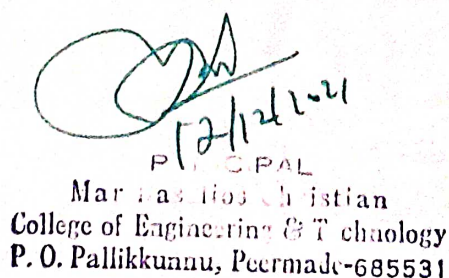 12/12/2021
PRINCIPAL
Mar Baselios Christian
College of Engineering & Technology
P. O. Pallikkunnu, Peermade-685531